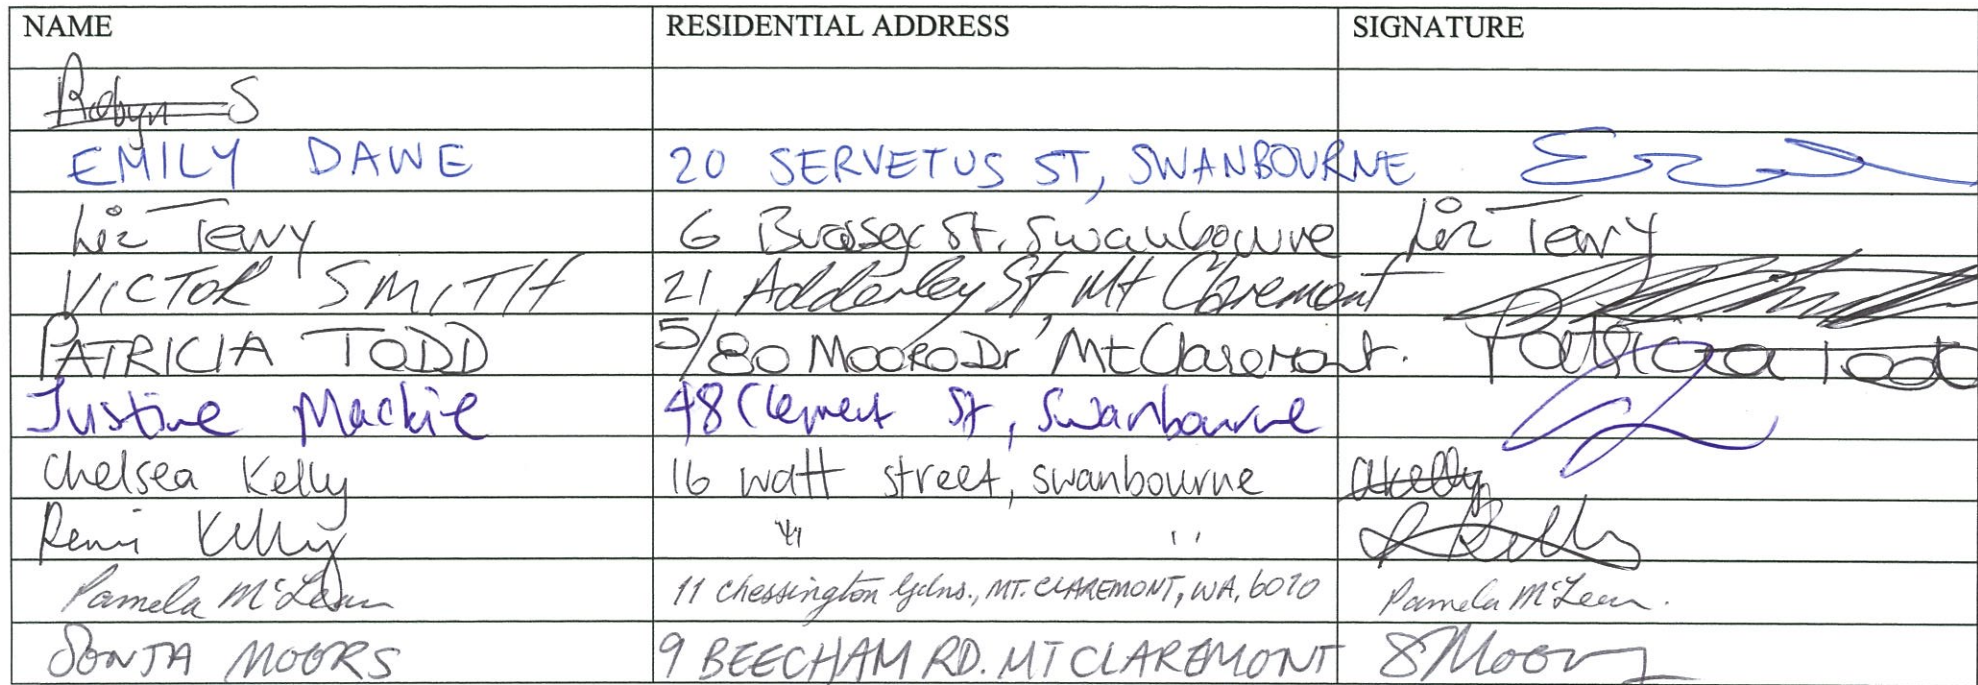 NAME RESIDENTIAL ADDRESS SIGNATURE
Robyn S
EMILY DAWE 20 SERVETUS ST, SWANBOURNE
Liz Terry 6 St. Swanbourne Liz Terry
VICTOR SMITH 21 Adderley St Mt Claremont
PATRICIA TODD 5/80 Mooro Dr Mt Claremont. Patricia Todd
Justine Mackie 48 Clement St, Swanbourne
Chelsea Kelly 16 watt street, swanbourne CKelly
Remi Kelly " " Kelly
Pamela McLean 11 Chessington Gdns., MT. CLAREMONT, WA, 6010 Pamela McLean.
SONJA MOORS 9 BEECHAM RD. MT CLAREMONT SMoors